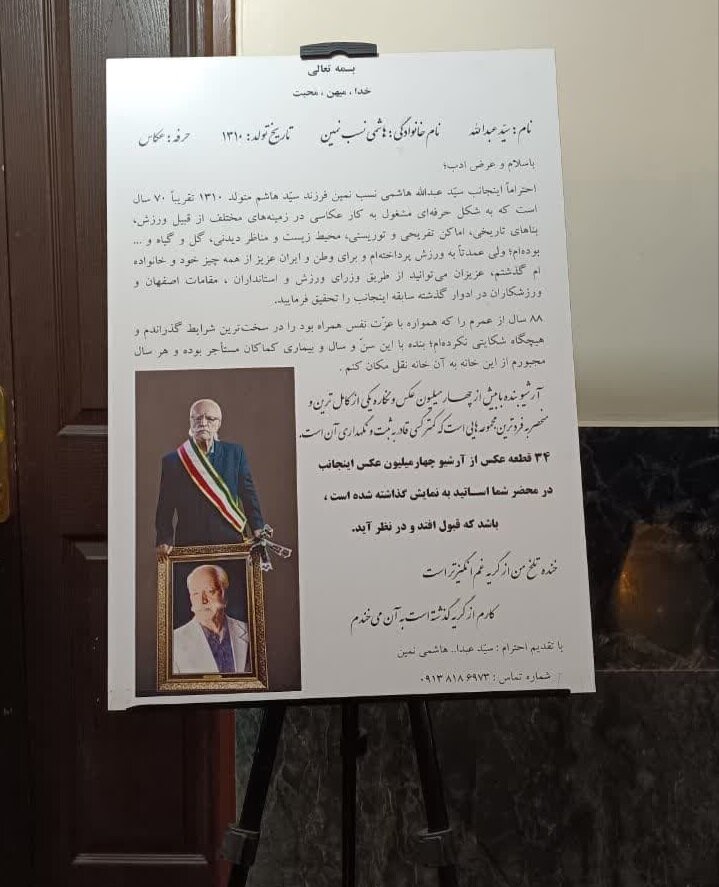 بسمه تعالی
خدا ، میهن ، محبت
نام : سیّد عبدالله نام خانوادگی : هاشمی نسب نمین تاریخ تولد : ۱۳۱۰ حرفه : عکاس
باسلام و عرض ادب؛
احتراماً اینجانب سیّد عبدالله هاشمی نسب نمین فرزند سیّد هاشم متولد ۱۳۱۰ تقریباً ۷۰ سال
است که به شکل حرفه‌ای مشغول به کار عکاسی در زمینه‌های مختلف از قبیل ورزش،
بناهای تاریخی، اماکن تفریحی و توریستی، محیط زیست و مناظر دیدنی، گل و گیاه و ...
بوده‌ام؛ ولی عمدتاً به ورزش پرداخته‌ام و برای وطن و ایران عزیز از همه چیز خود و خانواده
ام گذشتم، عزیزان می‌توانید از طریق وزرای ورزش و استانداران ، مقامات اصفهان و
ورزشکاران در ادوار گذشته سابقه اینجانب را تحقیق فرمایید.
۸۸ سال از عمرم را که همواره با عزّت نفس همراه بود را در سخت‌ترین شرایط گذراندم و
هیچگاه شکایتی نکرده‌ام؛ بنده با این سنّ و سال و بیماری کماکان مستأجر بوده و هر سال
مجبورم از این خانه به آن خانه نقل مکان کنم .
آرشیو بنده با بیش از چهار میلیون عکس و نگاره یکی از کامل ترین و
منحصر به فردترین مجموعه‌هایی است که کمتر کسی قادر به ثبت و نگهداری آن است.
۳۴ قطعه عکس از آرشیو چهارمیلیون عکس اینجانب
در محضر شما اساتید به نمایش گذاشته شده است ،
باشد که قبول افتد و در نظر آید.
خنده تلخ من از گریه غم انگیزتر است
کارم از گریه گذشته است به آن می خندم
با تقدیم احترام : سیّد عبدا.. هاشمی نمین
شماره تماس : ۰۹۱۳ ۸۱۸ ۶۹۷۳